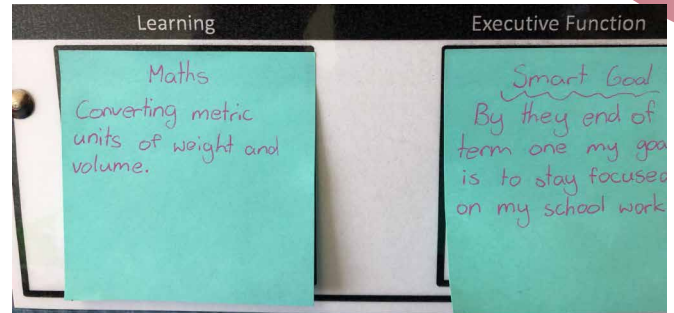 Learning
Executive Function
Maths
Converting metric
units of weight and
volume.
Smart Goal
By they end of
term one my goa
is to stay focused
on my school work